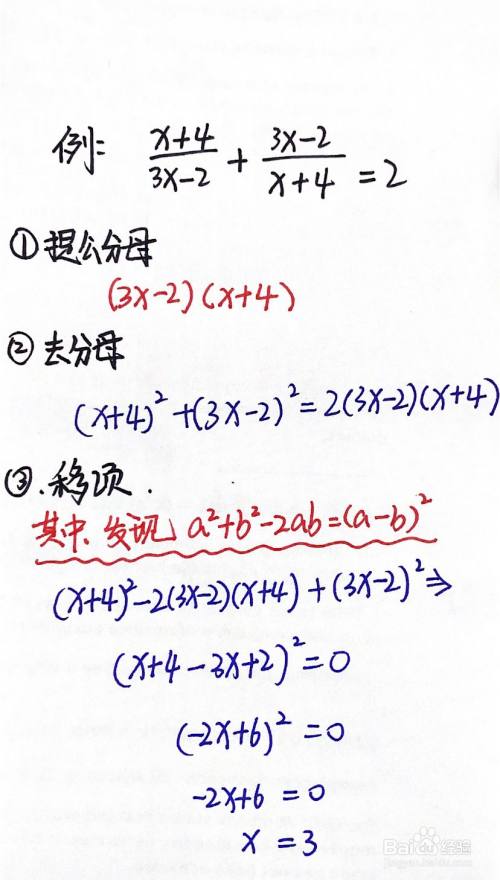 例: (x+4)/(3x-2) + (3x-2)/(x+4) = 2
①提公分母
(3x-2)(x+4)
②去分母
(x+4)²+(3x-2)²=2(3x-2)(x+4)
③.移项.
其中、发现 a²+b²-2ab=(a-b)²
(x+4)²-2(3x-2)(x+4)+(3x-2)²⇒
(x+4-3x+2)²=0
(-2x+6)²=0
-2x+6=0
x=3
Baidu经验
jingyan.baidu.com